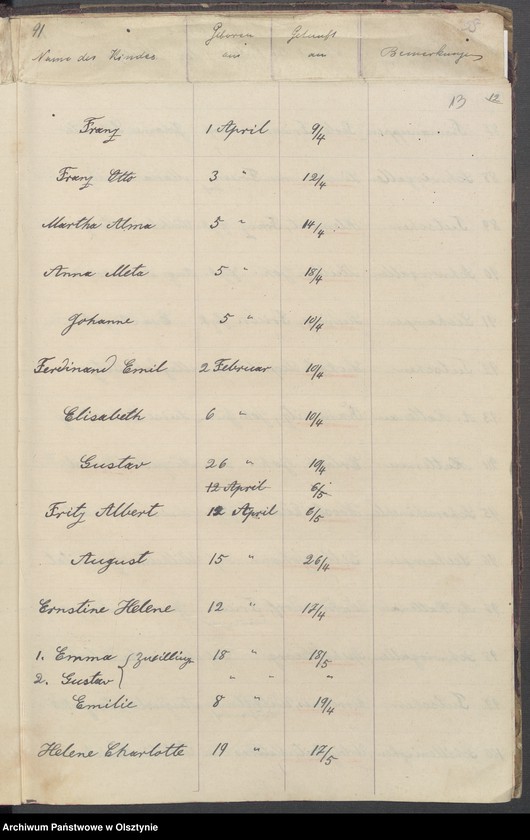 91. 
Name des Kindes Geboren am Getauft am Bemerkungen
13 12
Franz 1 April 9/4
Franz Otto 3 " 12/4
Martha Alma 5 " 14/4
Anna Meta 5 " 18/4
Johanne 5 " 10/4
Ferdinand Emil 2 Februar 10/4
Elisabeth 6 " 10/4
Gustav 26 " 10/4
12 April 6/5
Fritz Albert 12 April 6/5
August 15 " 26/4
Ernstine Helene 12 " 17/4
1. Emma } Zwillinge 18 " 18/5
2. Gustav " " "
Emilie 8 " 19/4
Helene Charlotte 19 " 17/5
Archiwum Państwowe w Olsztynie